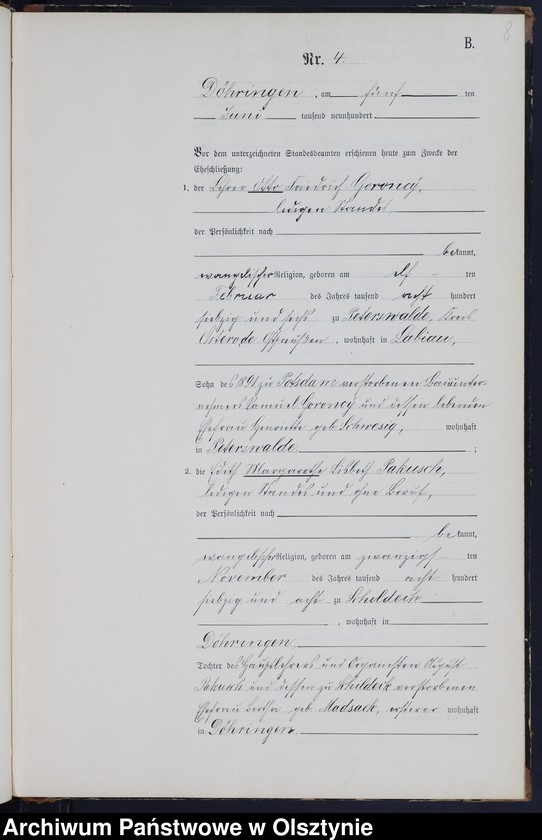 8
B.
Nr. 4.
Döhringen, am fünf ten
Juni tausend neunhundert
Vor dem unterzeichneten Standesbeamten erschienen heute zum Zwecke der
Eheschließung:
1. der Lehrer Otto Friedrich Goroncÿ,
ledigen Standes,
der Persönlichkeit nach
bekannt,
evangelischer Religion, geboren am elf ten
Februar des Jahres tausend acht hundert
siebzig und sechs zu Peterswalde, Kreis
Osterode Ostpreußen, wohnhaft in Labiau,
Sohn des 1891 zu Potsdam verstorbenen Bauunter-
nehmers Samuel Goroncÿ und dessen lebenden
Ehefrau Henriette geb. Schwesig, wohnhaft
in Peterswalde ;
2. die Edith Margarethe Lisbeth Pakusch,
ledigen Standes und ohne Beruf,
der Persönlichkeit nach
bekannt,
evangelischer Religion, geboren am zwanzigs ten
November des Jahres tausend acht hundert
siebzig und acht zu Schildeck
, wohnhaft in
Döhringen,
Tochter des Hauptlehrers und Organisten August
Pakusch und dessen zu Schildeck verstorbenen
Ehefrau Bertha geb. Madsack, ersterer wohnhaft
in Döhringen.
Archiwum Państwowe w Olsztynie